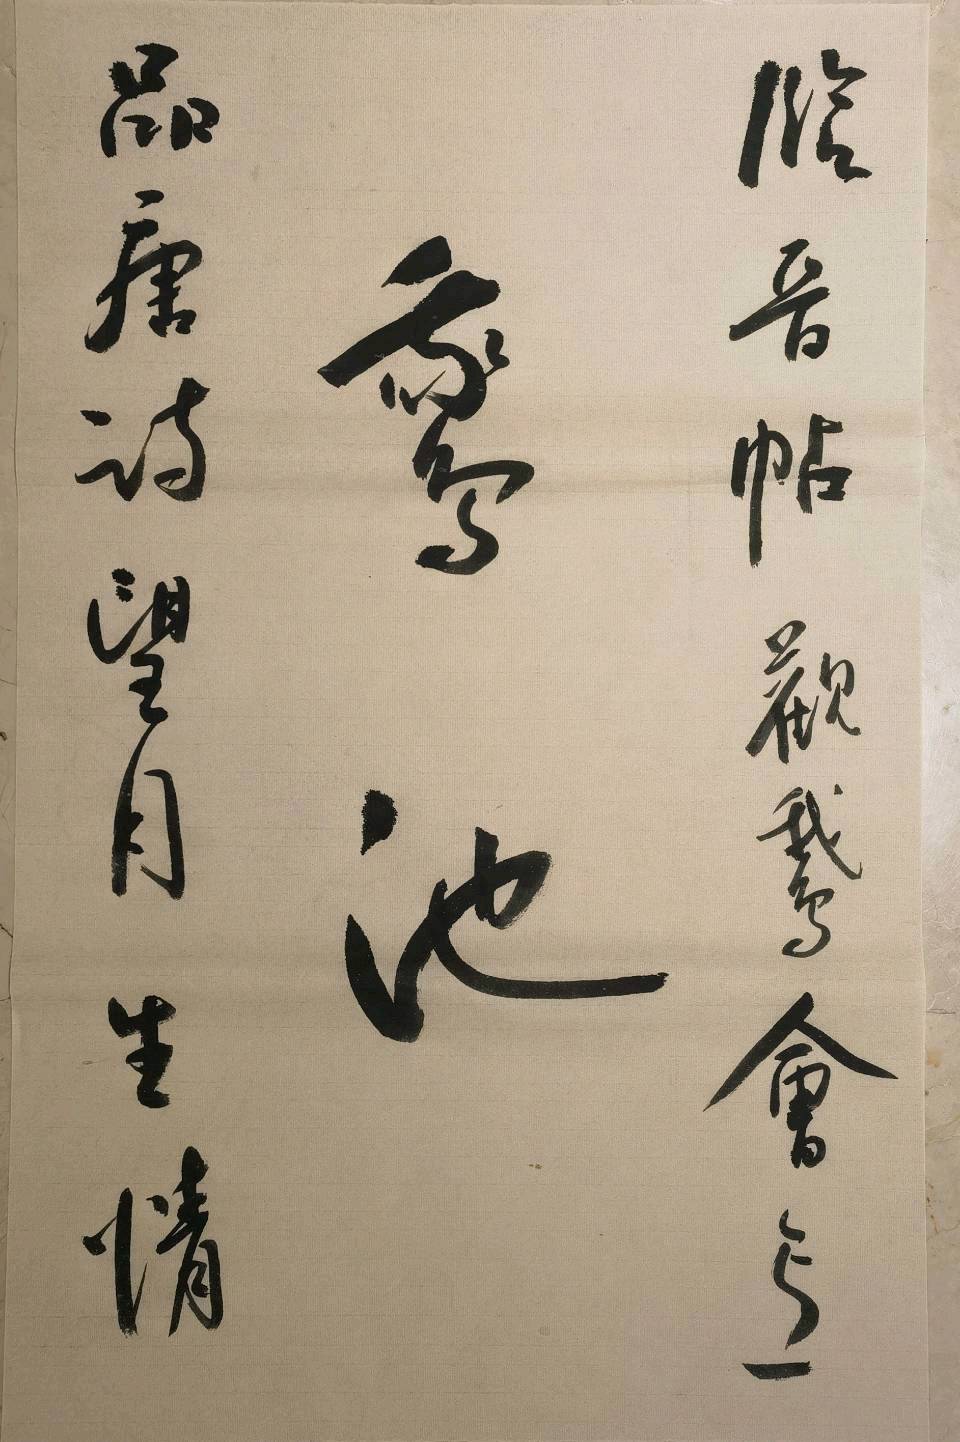 臨晋帖觀鵞會意
鵞池
品唐詩望月生情